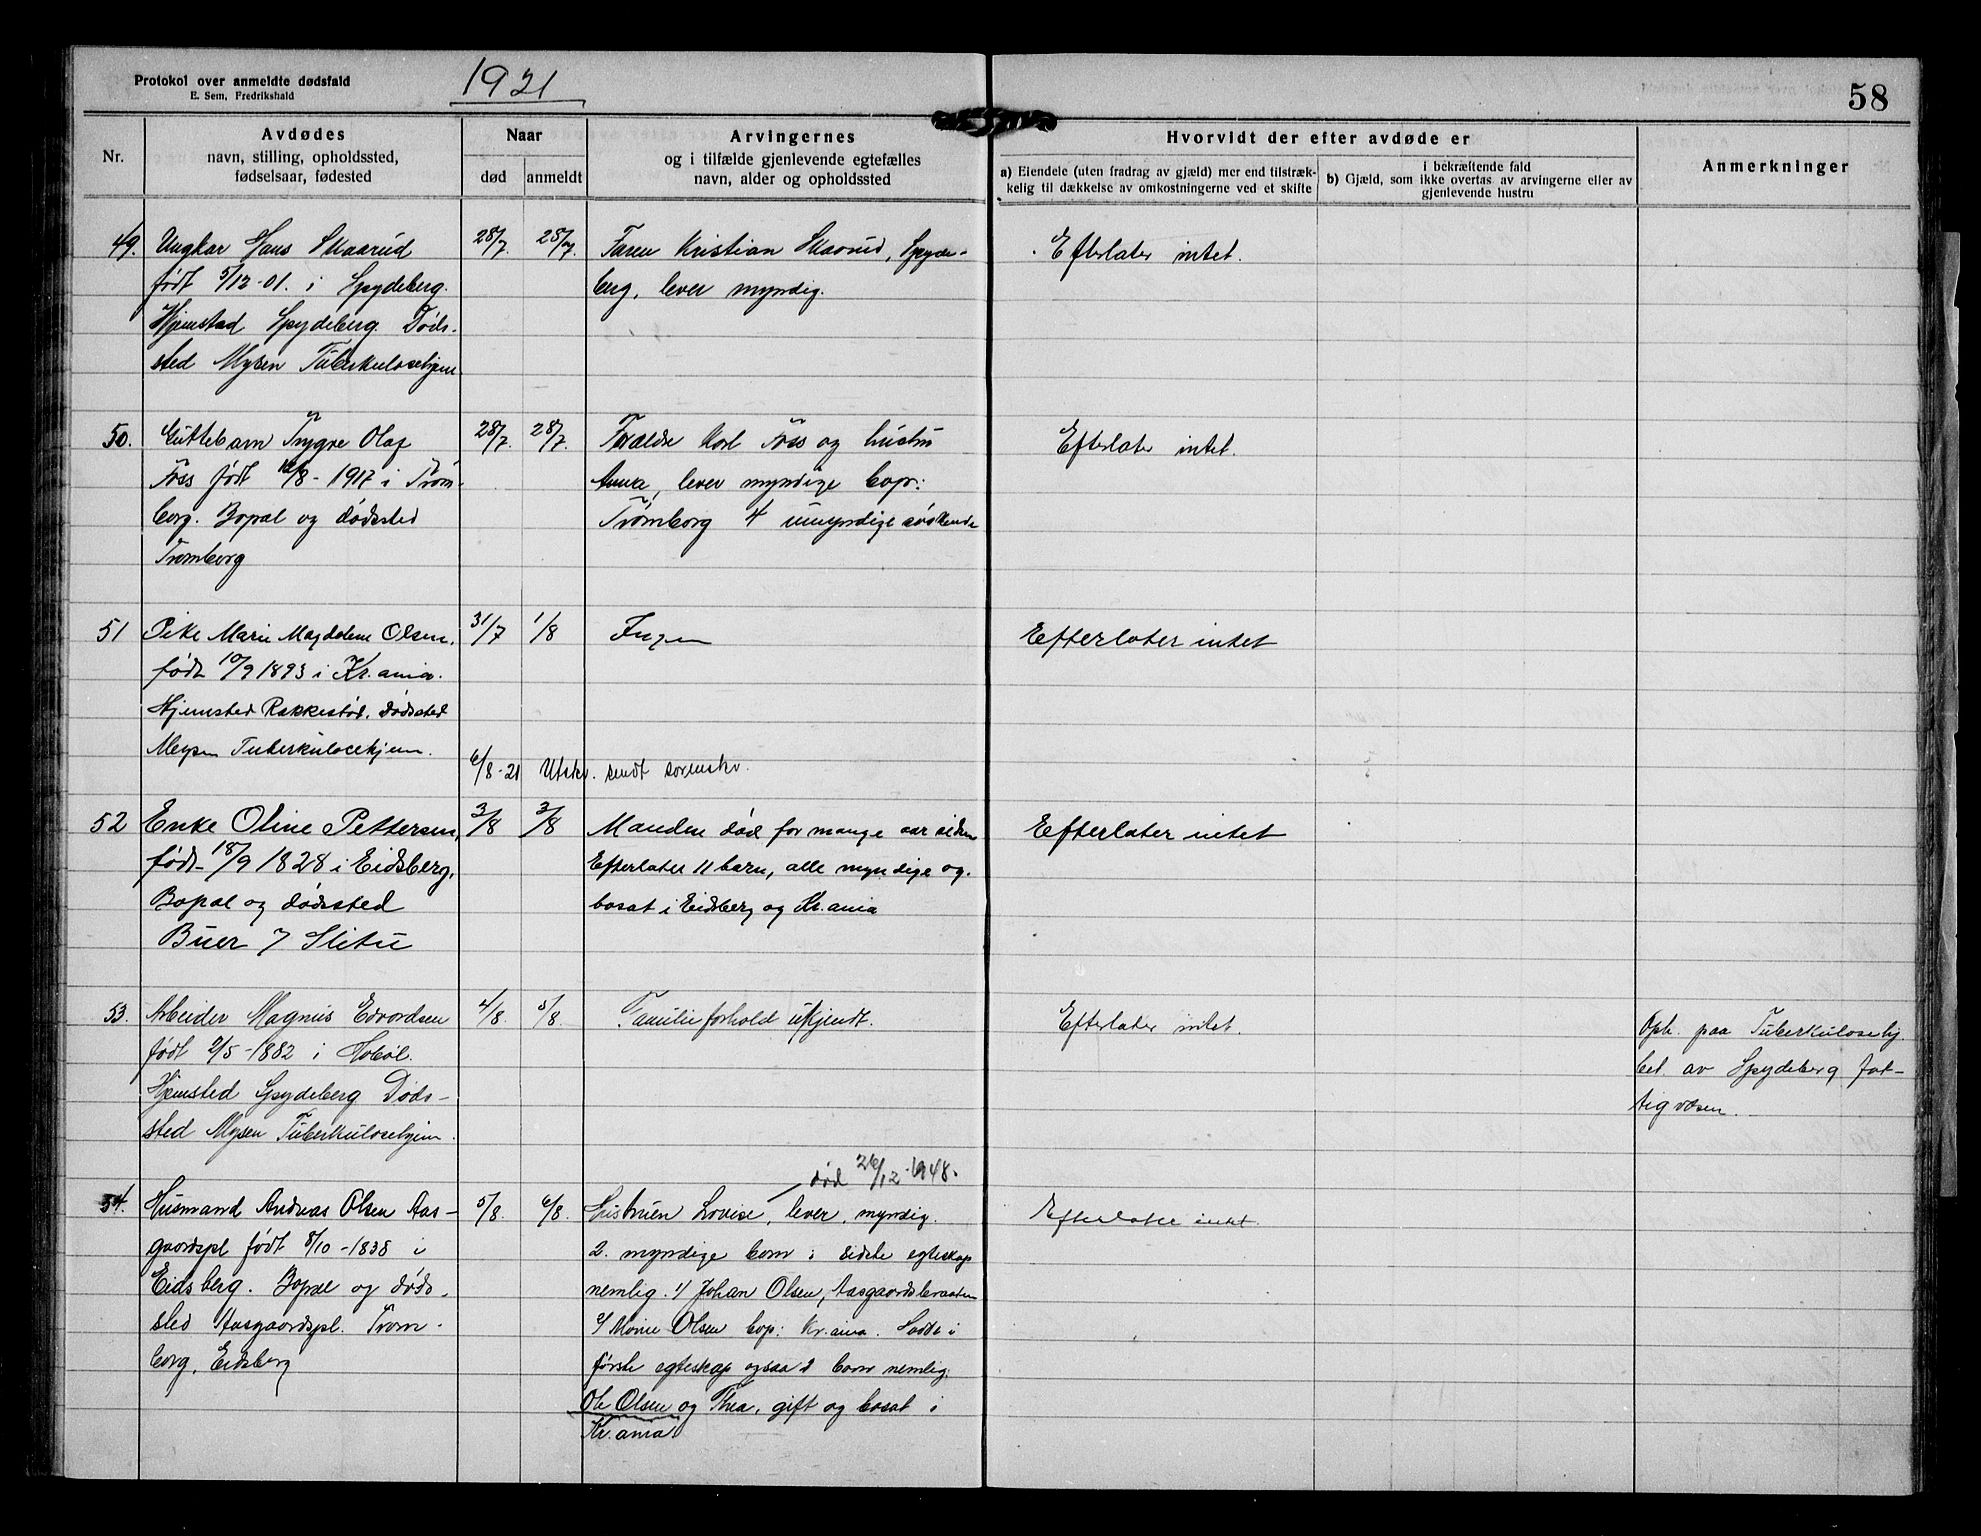 Protokol over anmeldte dødsfald
E. Sem, Fredrikshald
1921
58
Nr.
Avdødes
navn, stilling, opholdssted,
fødselsaar, fødested
Naar
død
anmeldt
Arvingernes
og i tilfælde gjenlevende egtefælles
navn, alder og opholdssted
Hvorvidt der efter avdøde er
a) Eiendele (uten fradrag av gjæld) mer end tilstræk-
kelig til dækkelse av omkostningerne ved et skifte
i bekræftende fald
b) Gjæld, som ikke overtas av arvingerne eller av
gjenlevende hustru
Anmerkninger
49. Ungkar Hans Skaarud
født 5/12-01. i Spydeberg.
Hjemstad Spydeberg Døds-
sted Mysen Tuberkulosehjem
28/7. 28/7.
Faren Kristian Skaarud, Spyde-
berg, lever myndig.
Efterlater intet.
50. Guttebarn Trygve Olaf
Foss født 12/8-1917 i Trøm-
borg. Bopæl og dødssted
Trømborg
28/7. 28/7.
Foreldre Karl Foss og hustru
Anna, lever myndige bop:
Trømborg 4 umyndige søskende
Efterlater intet.
51 Pike Marie Magdalene Olsen,
født 10/9 1893 i Kr.ania.
Hjemsted Rakkestad. dødssted
Mysen Tuberkulosehjem.
31/7 1/8
Ingen
Efterlater intet
6/8-21 Utskr. sendt sorenskr.
52 Enke Oline Pettersen,
født 18/9 1828 i Eidsberg,
Bopæl og dødssted
Buer i Slitu
3/8 3/8
Manden død for mange aar siden
Efterlater 11 barn, alle myndige og
bosat i Eidsberg og Kr.ania
Efterlater intet
53. Arbeider Magnus Edvardsen
født 2/5-1882 i Hobøl.
Hjemsted Spydeberg Døds-
sted Mysen Tuberkulosehjem.
4/8. 5/8.
Familieforhold ukjendt.
Efterlater intet.
Oph. paa Tuberkulosehj.
bet. av Spydeberg fat-
tigvæsen.
død 26/12-1948.
54. Husmand Andreas Olsen Aas-
gaardspl født 8/10-1838 i
Eidsberg. Bopæl og døds-
sted Aasgaardspl. Trøm-
borg, Eidsberg
5/8. 6/8.
Hustruen Lovise, lever, myndig.
2. myndige barn i sidste egteskap
nemlig. 1/ Johan Olsen, Aasgaardsbraaten
2/ Marie Olsen bop: Kr.ania. Hadde i
første egteskap ogsaa 2 barn nemlig.
Ole Olsen og Thea, gift og bosat i
Kr.ania.
Efterlater intet.